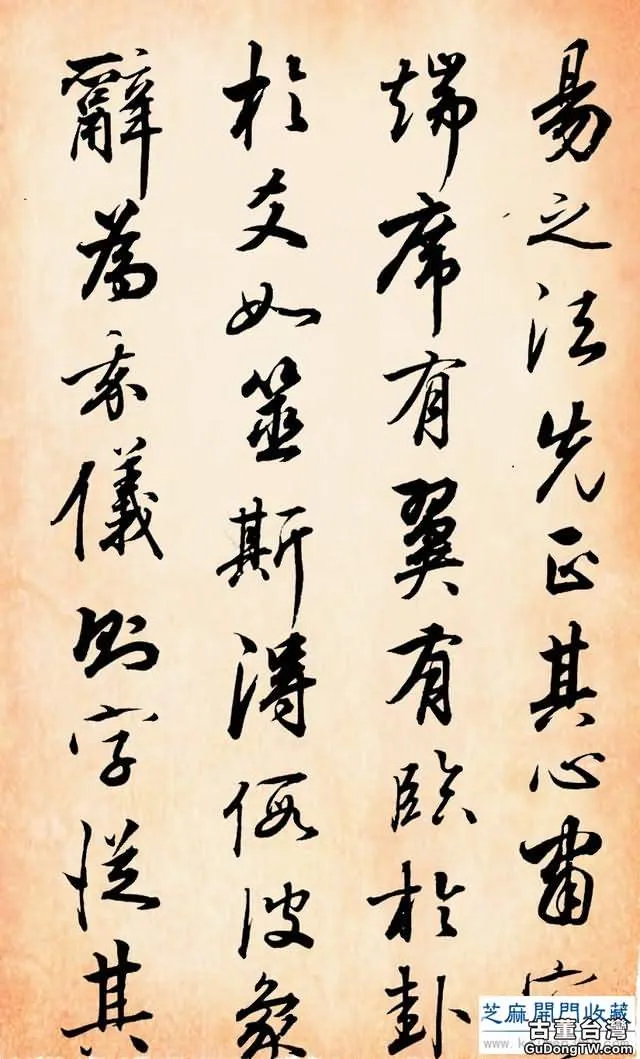 易之法先正其心肅
端席有翼有臨於卦
於爻如筮斯得假彼象
辭為我儀則字從其
芝麻開門收藏
古董台灣
GuDongTW.com